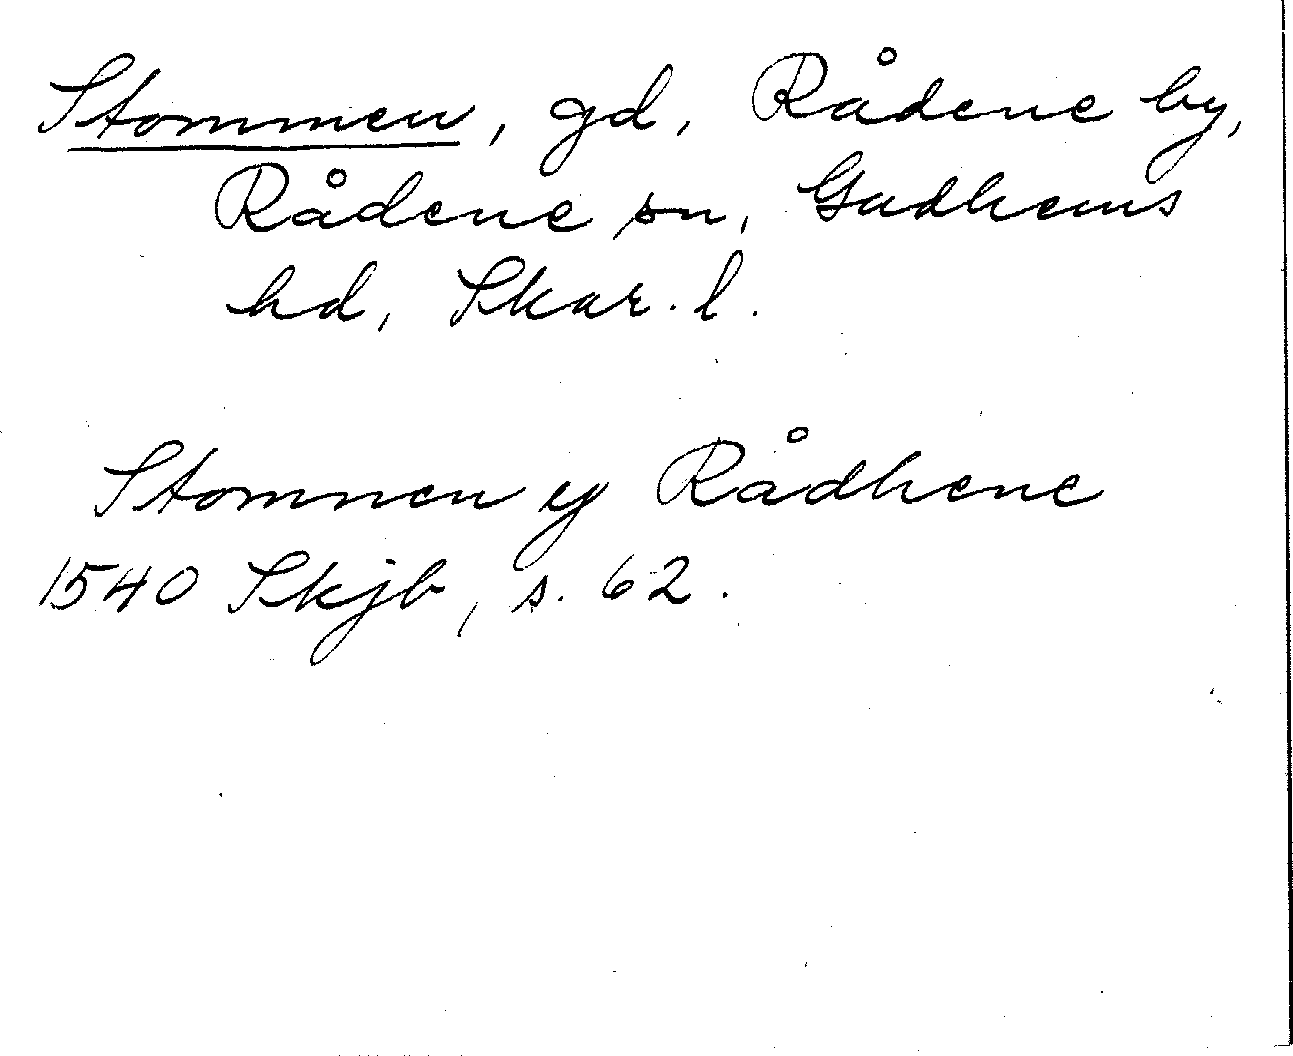 Stommen, gd, Rådene by,
Rådene sn, Gudhems
hd, Skar. l.
Stomnen y Rådhene
1540 Skjb, s. 62.